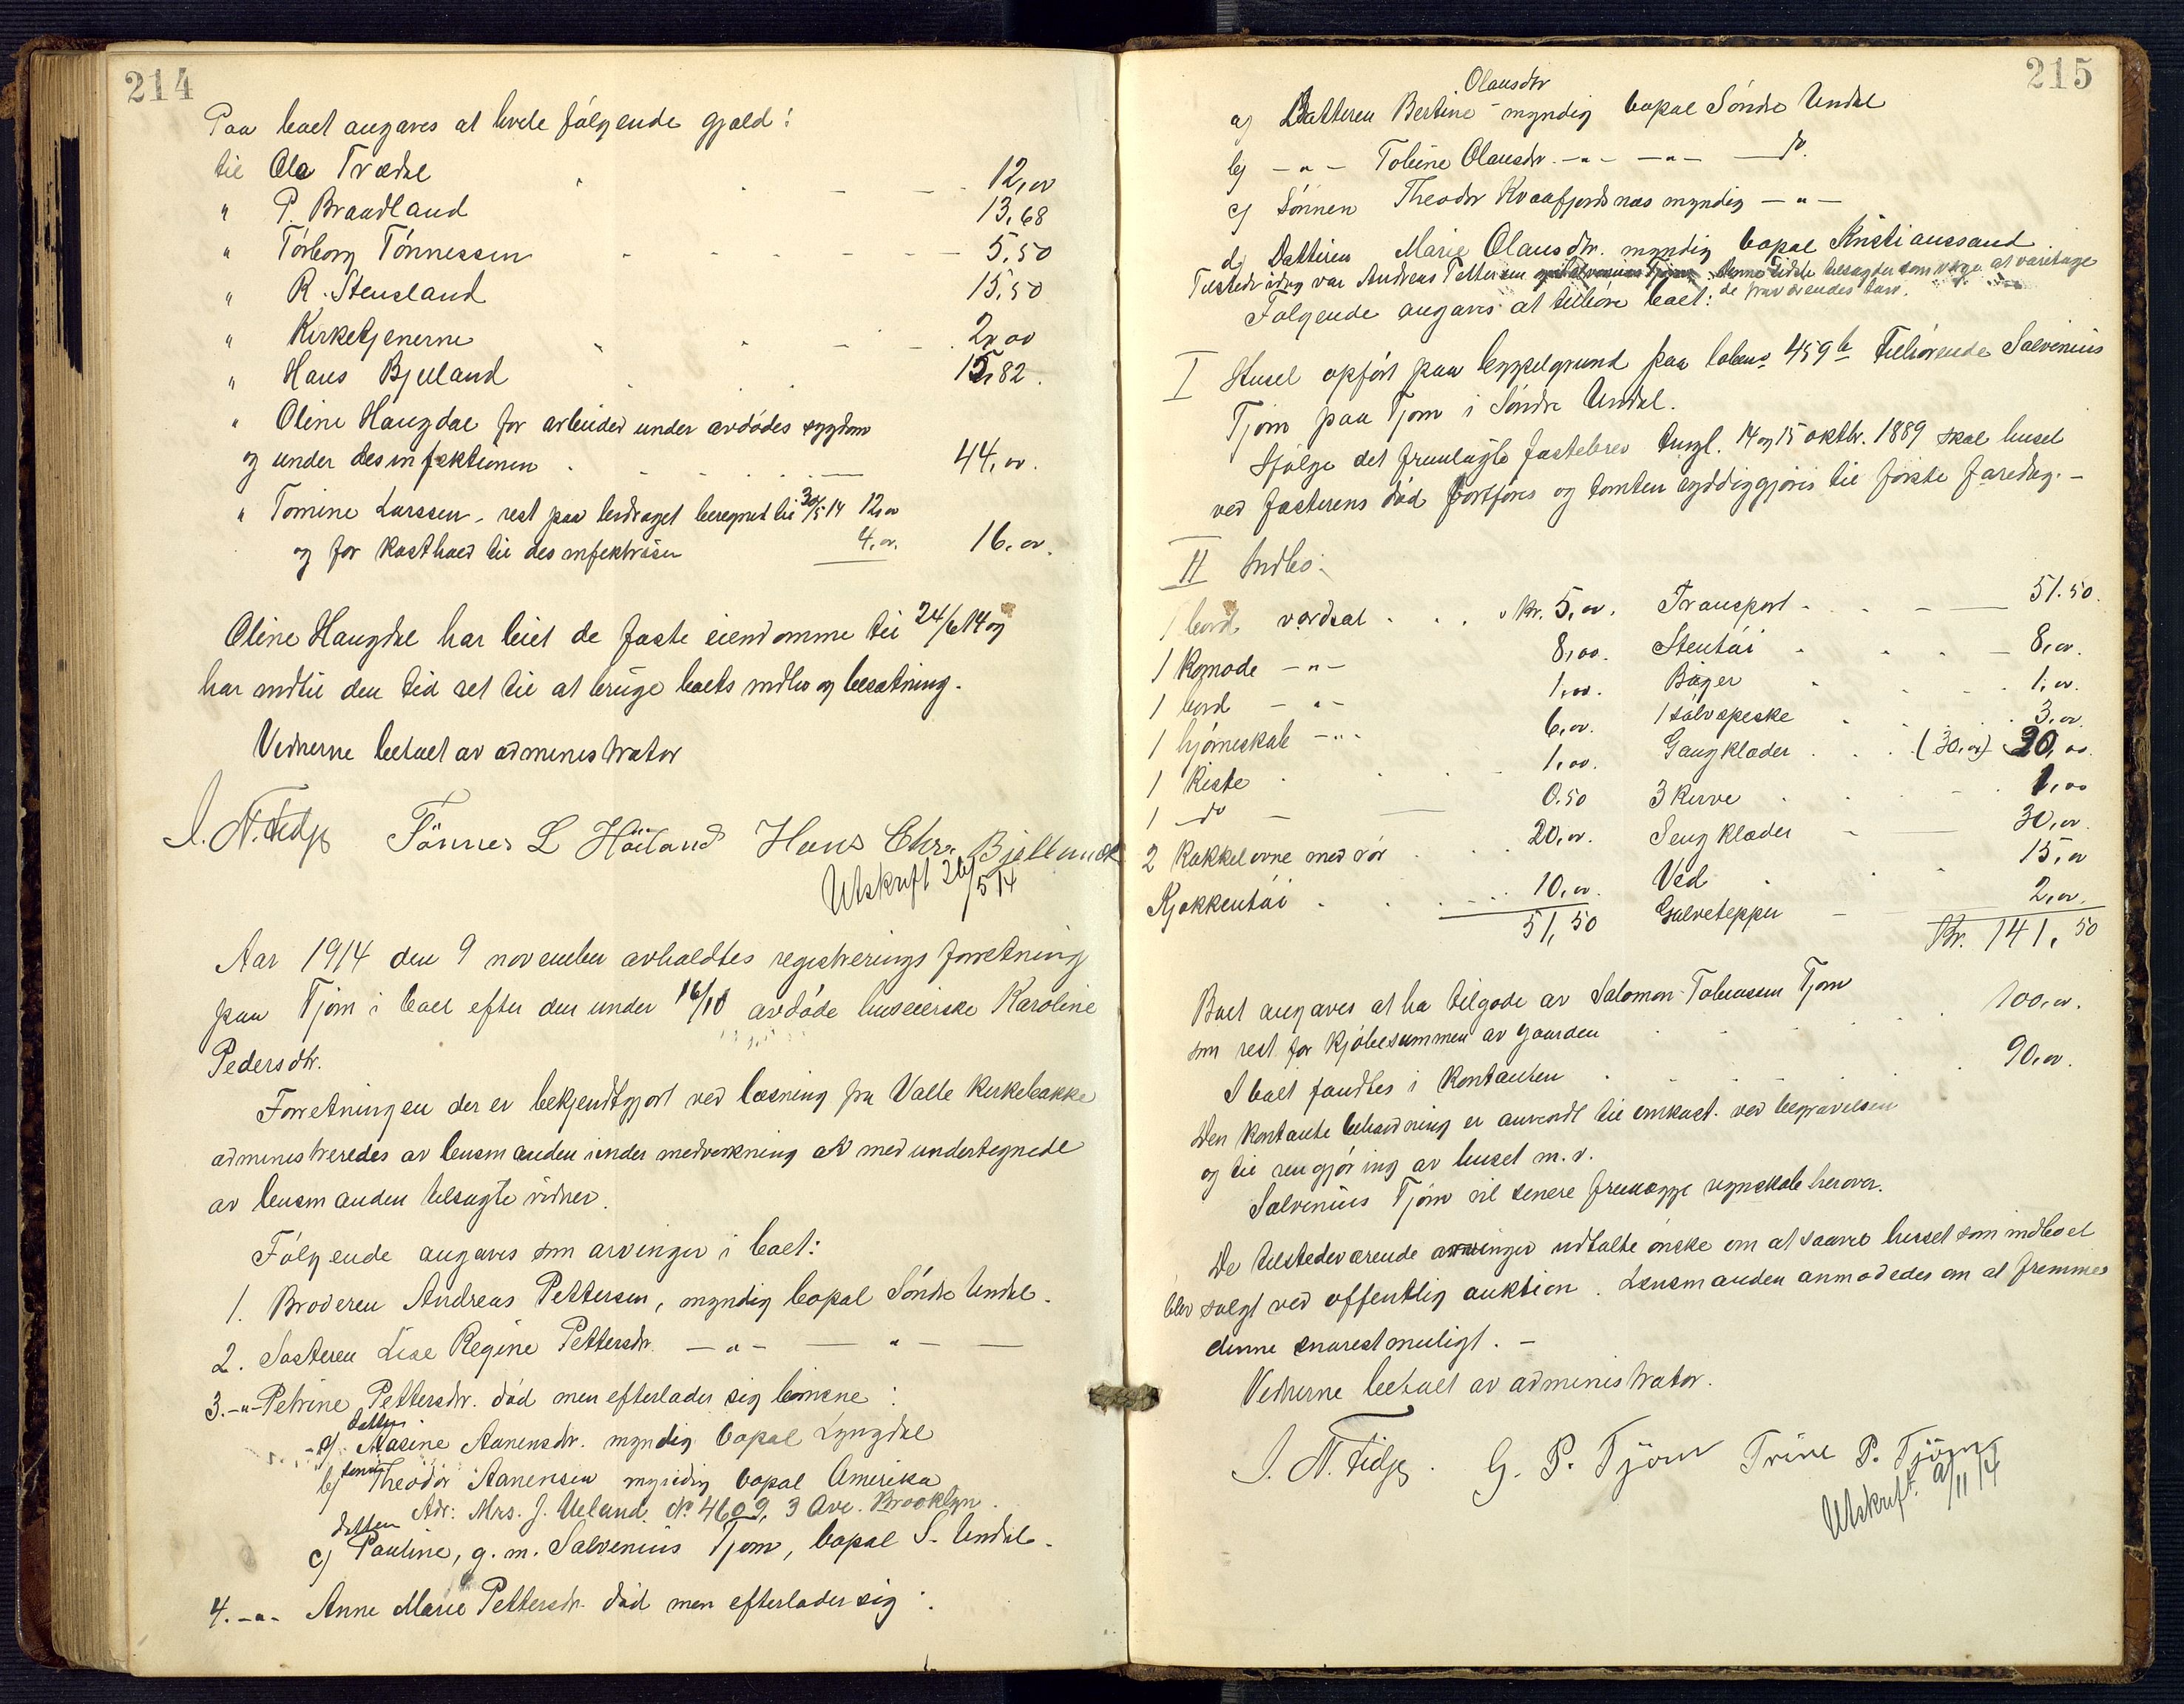 214
Paa boet angaves at hvile følgende gjæld:
til Ola Trædal 12,00
" P. Braadland 13,68
" Torborg Tønnessen 5,50
" R. Stensland 15,50
" Kirketjenerne 2,00
" Hans Bjelland 15,82.
" Oline Haugdal for arbeider under avdødes sygdom
og under desinfektionen 44,00.
" Tomine Larssen - rest paa beregnet til 30/5 14 12,00
og for kosthold til desinfektrisen 4,00. 16,00.
Oline Haugdal har leiet de faste eiendomme til 24/6 14 og
har indtil den tid ret til at bruge boets indbo og besætning.
Vidnerne betalt av administrator
J. N. Fidje Tönnes L Höiland Hans Chr. Bjelland
Utskrift 26/5 14
Aar 1914 den 9 november avholdtes registreringsforretning
paa Tjom i boet efter den under 16/10 avdøde huseierske Karoline
Pedersdtr.
Forretningen der er bekjendtgjort ved læsning fra Valle Kirkebakke
administreredes av lensmanden under medvirkning av medundertegnede
av lensmanden tilsagte vidner.
Følgende angaves som arvinger i boet:
1. Broderen Andreas Pettersen, myndig bopæl Søndre Undal.
2. Søsteren Lise Regine Pettersdtr. -"- -"-
3. -"- Petrine Pettersdtr. død men efterlader sig børnene:
a) datter Masine Aanensdtr. myndig bopæl Lyngdal
b) sønn Theodor Aanensen myndig bopæl Amerika
Adr: Mrs. J. Ueland. No 4609, 3 Ave. Brooklyn.
c) datter Pauline, g. m. Salvenius Tjom, bopæl S. Undal.
4. -"- Anne Marie Pettersdtr. død men efterlader sig:
215
a) Datteren Bertine Olausdtr myndig bopæl Søndre Undal
b) -"- Tobine Olausdtr. -"- -"- do.
c) Sønnen Theodor Kvaafjordnæs myndig -"-
d) Datteren Marie Olausdtr. myndig bopæl Kristianssand.
Tilstede idag var Andreas Pettersen tilsagt som verge at varetage
de fraværendes tarv.
Følgende angaves at tilhøre boet:
I Husel opført paa bygselgrund paa løbenr 459 b tilhørende Salvenius
Tjom paa Tjom i Søndre Undal.
Ifølge det fremlagte fæstebrev tingl. 14 og 15 oktbr. 1889 skal husel
ved fæsterens død bortføres og tomten ryddiggjøres til første faredag.-
II Indbo.
1 bord værdsat kr. 5,00. Transport 51.50.
1 Komode -"- 8,00. Stentøi 8,00.
1 bord -"- 1,00. Bøger 1,00.
1 hjørneskab -"- 6,00. 1 sølvspeske 3,00.
1 Kiste 1,00. Gangklæder (30,00) 30,00.
1 do 0.50 3 Kurve 1,00
2 Kakkelovne med rør 20,00. Sengklæder 30,00.
Kjøkkentøi 10,00. Ved 15,00
51,50 Gulvtepper 2,00.
Kr. 141,50
Boet angaves at ha tilgode av Salomon Tobiassen Tjom
som rest for kjøbesummen av gaarden 100,00.
I boet fandtes i kontanten 90,00.
Den kontante beholdning er anvendt til omkost. ved begravelsen
og til rengjøring av huset m.v.
Salvenius Tjom vil senere fremlægge regnskab herover.
De tilstedeværende arvinger udtalte ønske om at saavel husel som indboet
blev solgt ved offentlig auktion. Lensmanden anmodedes om at fremme
denne snarest muligt. -
Vidnerne betalt av administrator.
J. N. Fidje. G. P. Tjöm Trine P. Tjöm
Utskrift 9/11 14